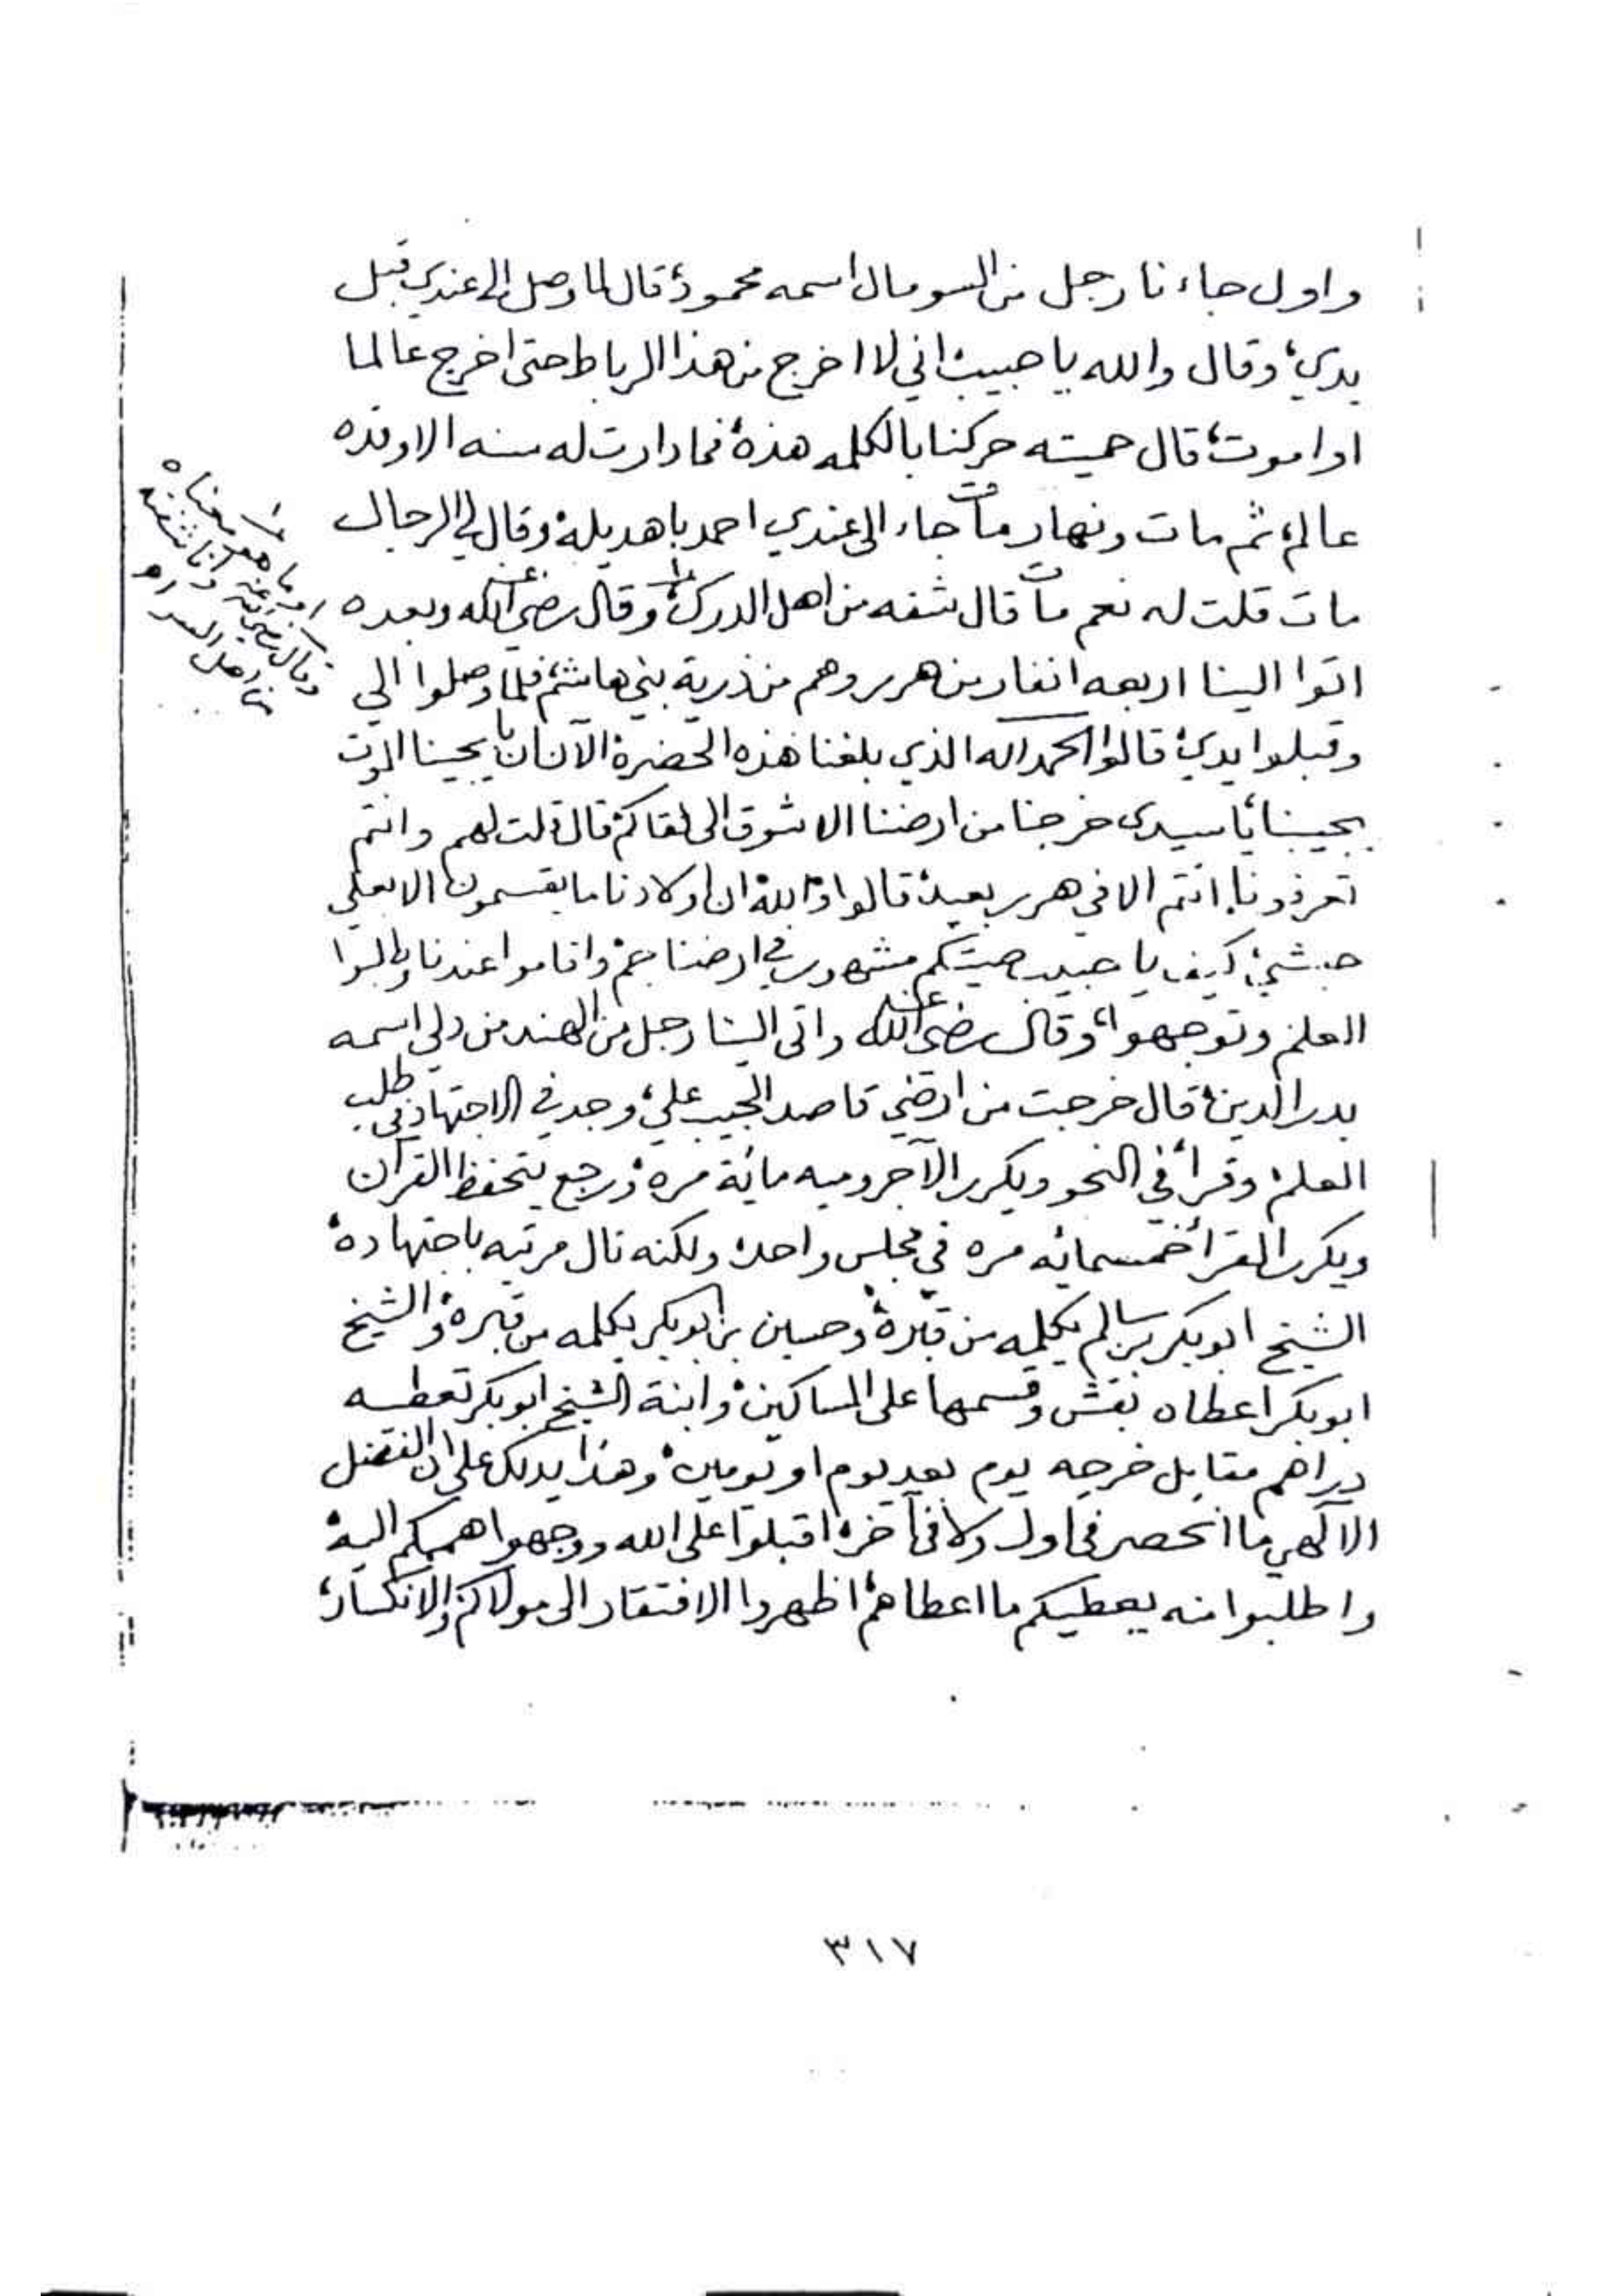 واول جاءنا رجل من السومال اسمه محمود، قال لما وصل الى عندي قبل
يدي، وقال والله يا حبيب اني لا اخرج من هذا الرباط حتى اخرج عالما
او اموت، قال حميته حركنا بالكلمه هذه، فما دارت له سنه الا وقده
عالم، ثم مات ونهار مات جاء الى عندي احمد باهديله، وقال لي الرجال
مات قلت له نعم مات قال شفه من اهل الدرك، وقال رضي الله عنه وبعده
اتوا الينا اربعه انفار من هرر وهم من ذرية بني هاشم، فلما وصلوا الي
وقبلوا يدي، قالوا الحمد لله الذي بلغنا هذه الحضرة الآن ان با يجينا الموت
يجينا، يا سيدي خرجنا من ارضنا الا شوق الى لقاكم، قال قلت لهم وانتم
تعرفونا، انتم الا في هرر بعيد، قالوا والله ان اولادنا ما يقسمون الا بعلي
حبشي، كيف يا حبيب صيتكم مشهور في ارضنا جم، واقاموا عندنا وطلبوا
العلم، وتوجهوا، وقال رضي الله عنه واتى الينا رجل من الهند من دلي اسمه
بدر الدين، قال خرجت من ارضي قاصد الحبيب علي، وجد في الاجتهاد في طلب
العلم، وقرأ في النحو ويكرر الآجروميه مائة مرة، ورجع يتحفظ القرآن
ويكرر المقرأ خمسمائه مره في مجلس واحد، ولكنه نال مرتبه باجتهاده،
الشيخ ابوبكر بن سالم يكلمه من قبره، وحسين بن ابوبكر يكلمه من قبره، والشيخ
ابوبكر اعطاه بقش وقسمها على المساكين، وابنة الشيخ ابوبكر تعطيه
دراهم مقابل خرجه يوم بعد يوم او يومين، وهذا يدلك على ان الفضل
الآلهي ما انحصر في اول ولا في آخر، اقبلوا على الله ووجهوا هممكم اليه،
واطلبوا منه يعطيكم ما اعطاهم، اظهروا الافتقار الى مولاكم، والانكسار،
او ما هو معناه
وقال رضي الله عنه وانا شفته
من اهل السر اهـ
٣١٧